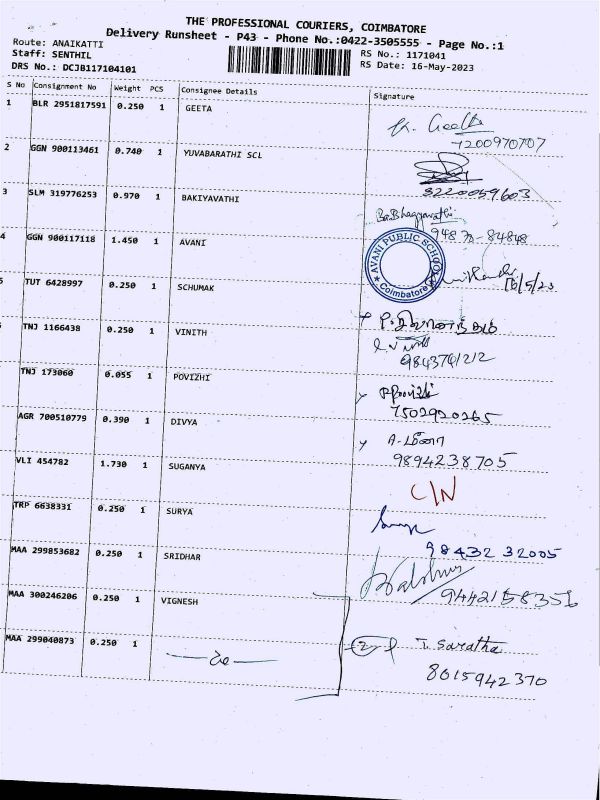 THE PROFESSIONAL COURIERS, COIMBATORE
Delivery Runsheet - P43 - Phone No.:0422-3505555 - Page No.:1
Route: ANAIKATTI RS No.: 1171041
Staff: SENTHIL RS Date: 16-May-2023
DRS No.: DCJB117104101
S No Consignment No Weight PCS Consignee Details Signature
1 BLR 2951817591 0.250 1 GEETA K. Geetha
7200970707
2 GGN 900113461 0.740 1 YUVABARATHI SCL
3220059603
3 SLM 319776253 0.970 1 BAKIYAVATHI
948 70-84848
4 GGN 900117118 1.450 1 AVANI AVANI PUBLIC SCHOOL Coimbatore
16/5/23
TUT 6428997 0.250 1 SCHUMAK
TNJ 1166438 0.250 1 VINITH
9843741212
TNJ 173060 0.055 1 POVIZHI
7502920265
AGR 700510779 0.390 1 DIVYA A-மீனா
9894238705
VLI 454782 1.730 1 SUGANYA C/N
TRP 6638331 0.250 1 SURYA
98432 32005
MAA 299853682 0.250 1 SRIDHAR
9442158356
MAA 300246206 0.250 1 VIGNESH
MAA 299040873 0.250 1 2 T. Saratha
8015942370